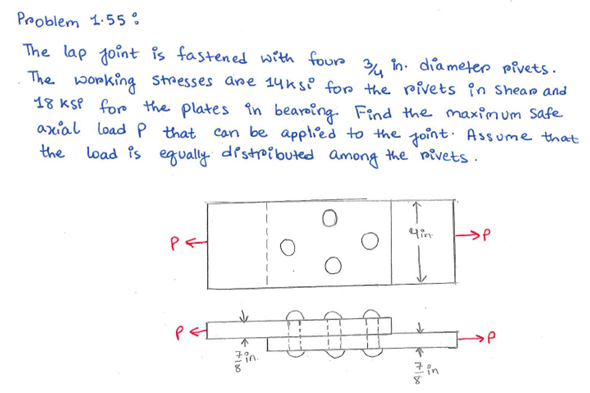 Problem 1.55 :
The lap joint is fastened with four 3/4 in. diameter rivets.
The working stresses are 14 ksi for the rivets in shear and
18 ksi for the plates in bearing. Find the maximum safe
axial load P that can be applied to the joint. Assume that
the load is equally distributed among the rivets.
P 4in P
P P
7/8 in. 7/8 in